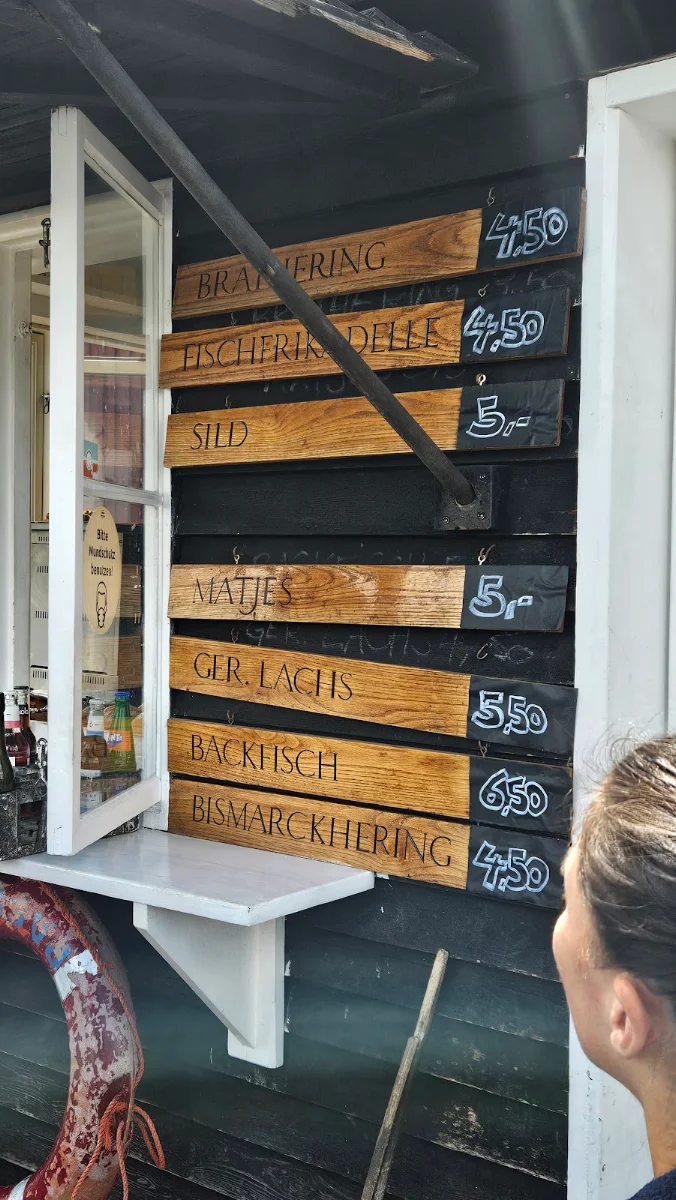 BRATHERING 4,50
FISCHFRIKADELLE 4,50
SILD 5,-
MATJES 5,-
GER. LACHS 5,50
BACKFISCH 6,50
BISMARCKHERING 4,50
Bitte
Mundschutz
benutzen!
GER. LACHS